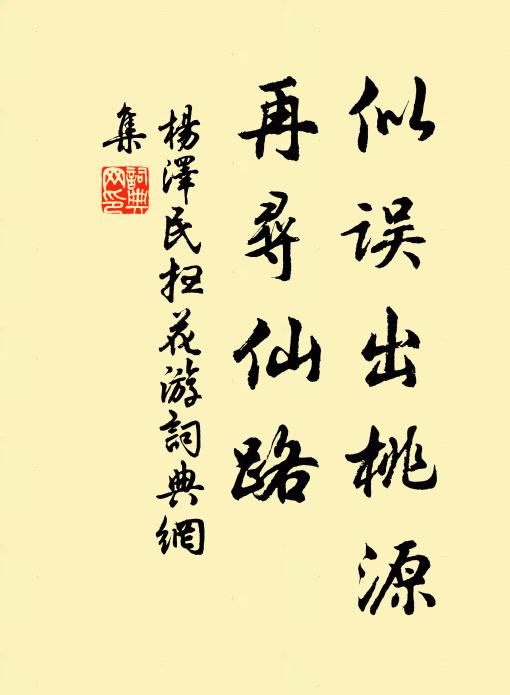 似误出桃源
再尋仙路
楊澤民扫花游詞典網
集
詞典
网印